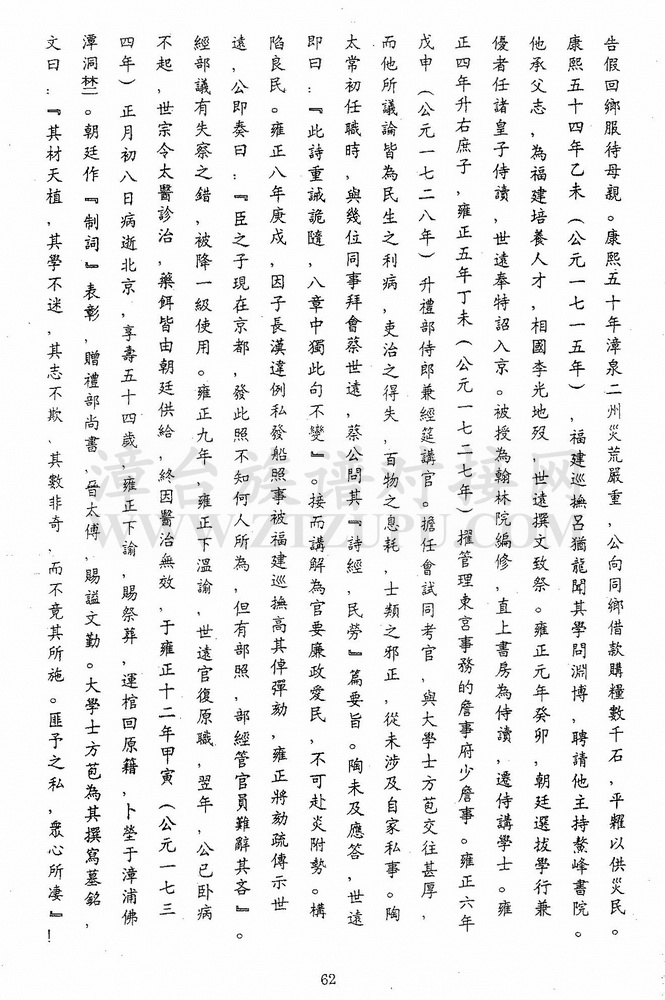 告假回鄉服待母親。康熙五十年漳泉二州災荒嚴重，公向同鄉借款購糧數千石，平糶以供災民。
康熙五十四年乙未（公元一七一五年），福建巡撫呂猶龍聞其學問淵博，聘請他主持鰲峰書院。
他承父志，為福建培養人才，相國李光地歿，世遠撰文致祭。雍正元年癸卯，朝廷選拔學行兼
優者任諸皇子侍讀，世遠奉特詔入京。被授為翰林院編修，直上書房為侍讀，遷侍講學士。雍
正四年升右庶子，雍正五年丁未（公元一七二七年）擢管理東宮事務的詹事府少詹事。雍正六年
戊申（公元一七二八年）升禮部侍郎兼經筵講官。擔任會試同考官，與大學士方苞交往甚厚，
而他所議論皆為民生之利病，吏治之得失，百物之息耗，士類之邪正，從未涉及自家私事。陶
太常初任職時，與幾位同事拜會蔡世遠，蔡公問其『詩經，民勞』篇要旨。陶未及應答，世遠
即曰：『此詩重誡詭隨，八章中獨此句不變』。接而講解為官要廉政愛民，不可赴炎附勢。構
陷良民。雍正八年庚戍，因子長漢違例私發船照事被福建巡撫高其倬彈劾，雍正將劾疏傳示世
遠，公即奏曰：『臣之子現在京都，發此照不知何人所為，但有部照，部經管官員難辭其吝』。
經部議有失察之錯，被降一級使用。雍正九年，雍正下溫諭，世遠官復原職，翌年，公已卧病
不起，世宗令太醫診治，藥餌皆由朝廷供給，終因醫治無效，于雍正十二年甲寅（公元一七三
四年）正月初八日病逝北京，享壽五十四歲，雍正下諭，賜祭葬，運棺回原籍，卜塋于漳浦佛
潭洞。朝廷作『制詞』表彰，贈禮部尚書，晉太傅，賜謚文勤。大學士方苞為其撰寫墓銘，
文曰：『其材天植，其學不迷，其志不欺，其數非奇，而不竟其所施。匪予之私，衆心所凄』！
62
漳台族谱对接网
WWW.ZTZUPU.COM